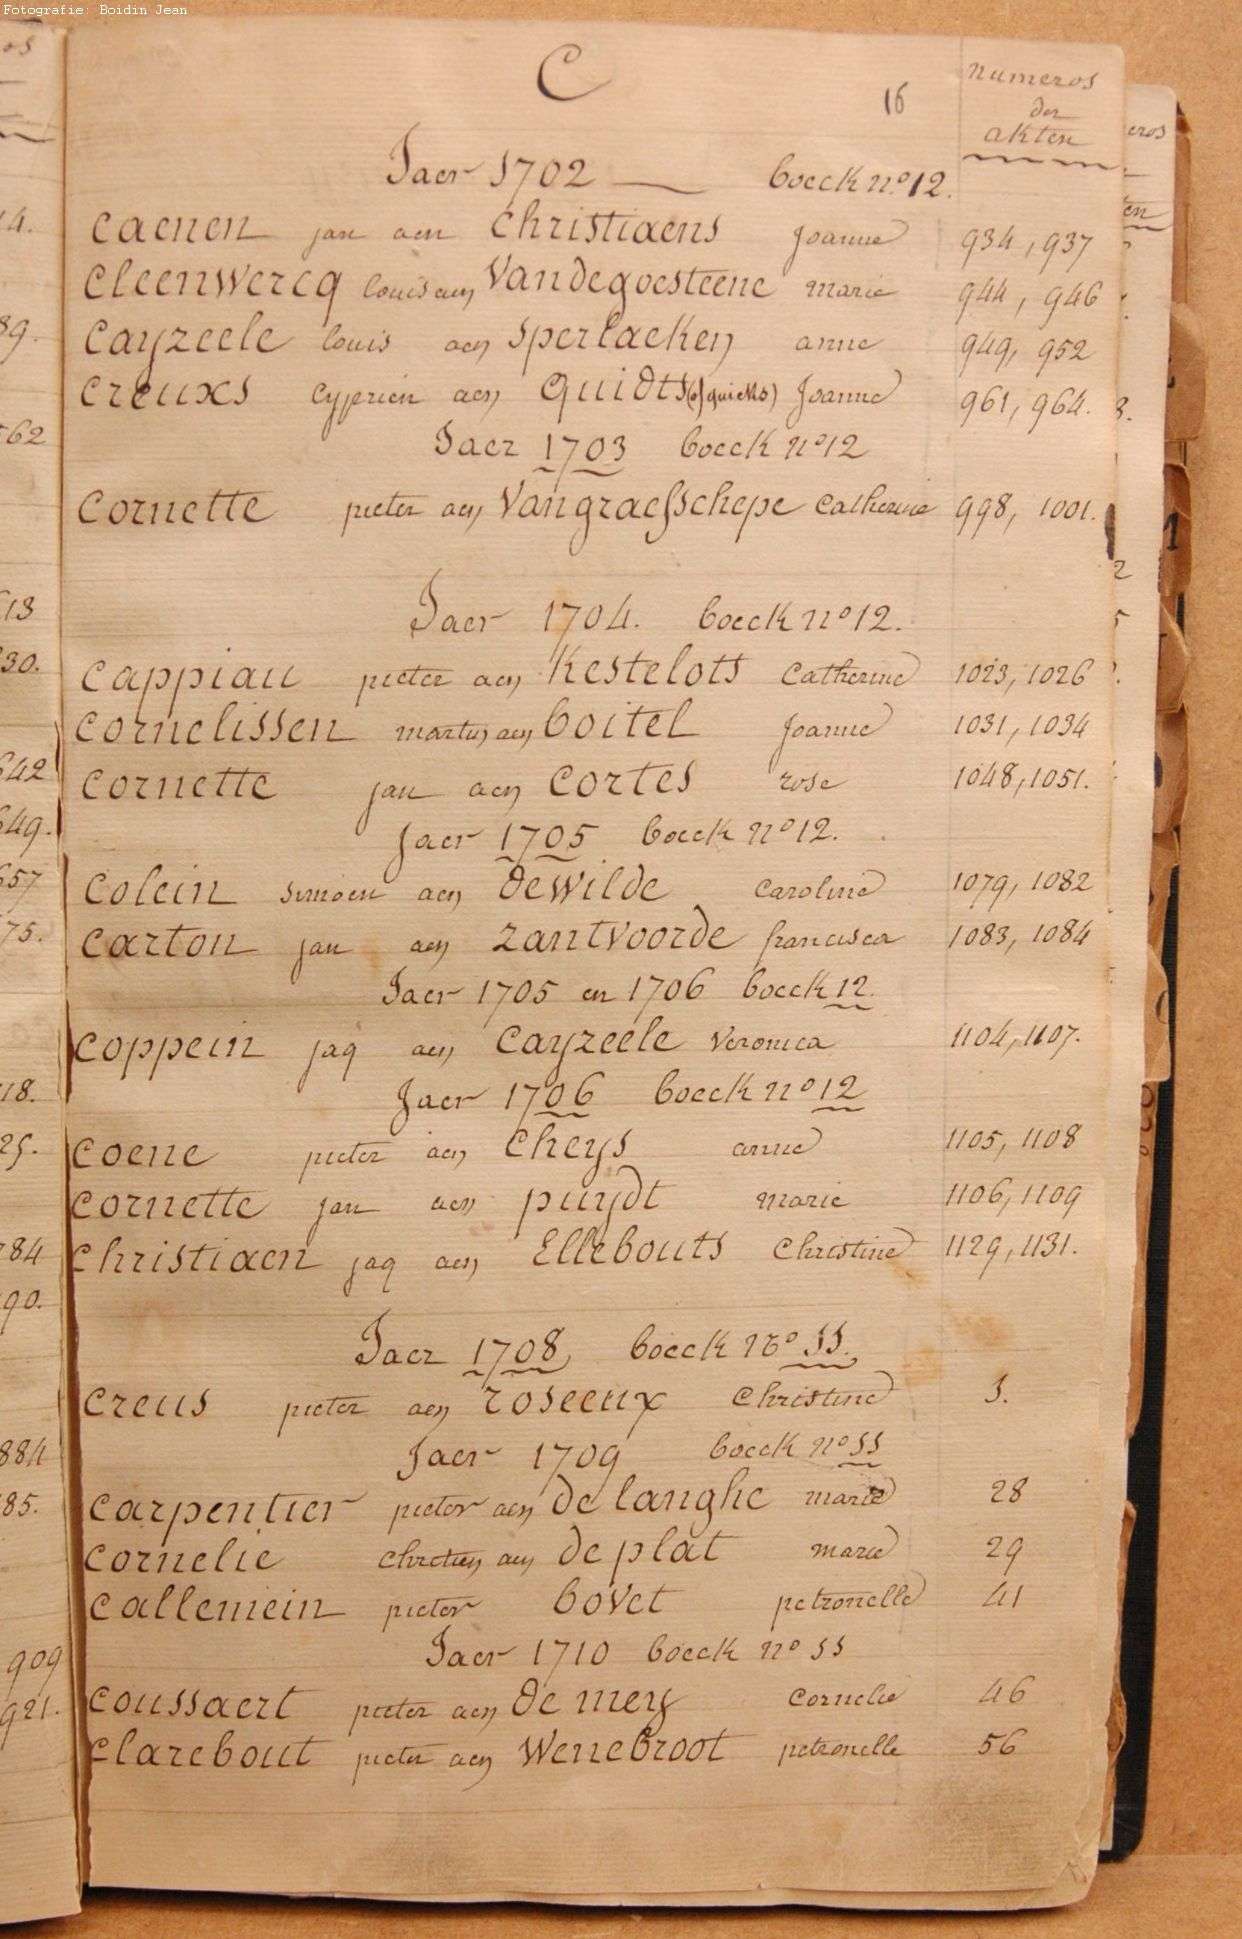 Fotografie: Boidin Jean
C
16
numeros
der
akten
Jaer 1702 — boeck nº 12.
Caenen jan aen Christiaens Joanne 934, 937
Cleenwercq louis aen Vandegoesteene marie 944, 946
Cayzeele louis aen Sperlaeken anne 949, 952
Creuxs Cyprien aen Quidts (of quicks) Joanne 961, 964.
Jaer 1703 boeck nº 12
Cornette pieter aen Vangraefschepe Catherine 998, 1001.
Jaer 1704. boeck nº 12.
Cappiau pieter aen Kestelots Catherine 1023, 1026
Cornelissen martin aen boitel Joanne 1031, 1034
Cornette jan aen Cortes rose 1048, 1051.
Jaer 1705 boeck nº 12.
Colein simoen aen dewilde Caroline 1079, 1082
Carton jan aen Zantvoorde francisca 1083, 1084
Jaer 1705 en 1706 boeck 12.
Coppein jaq aen Cayzeele Veronica 1104, 1107.
Jaer 1706 boeck nº 12
Coene pieter aen Cheys anne 1105, 1108
Cornette jan aen puydt marie 1106, 1109
Christiaen jaq aen Ellebouts Christine 1129, 1131.
Jaer 1708 boeck nº 11.
Creus pieter aen roseeux Christine 1.
Jaer 1709 boeck nº 11
Carpentier pieter aen de langhe marie 28
Cornelie chretien aen de plat marie 29
Callemein pieter bovet petronelle 41
Jaer 1710 boeck nº 11
Coussaert pieter aen de mey Cornelie 46
Clarebout pieter aen Wenebroot petronelle 56